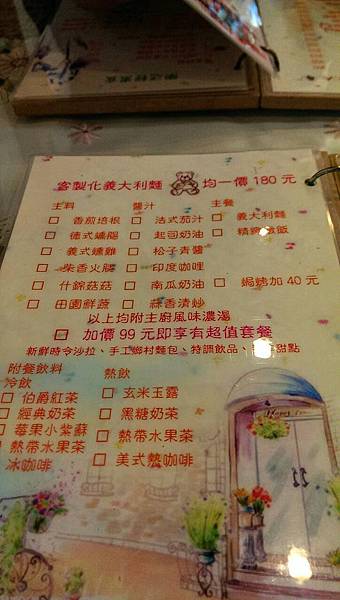 客製化義大利麵 均一價 180 元
主料 醬汁 主餐
香煎培根 法式茄汁 義大利麵
德式燻腸 起司奶油 精緻燉飯
義式燻雞 松子青醬
柴香火腿 印度咖哩
什錦菇菇 南瓜奶油 焗烤加 40 元
田園鮮蔬 蒜香清炒
以上均附主廚風味濃湯
加價 99 元即享有超值套餐
新鮮時令沙拉、手工鄉村麵包、特調飲品、甜點
附餐飲料
冷飲 熱飲
伯爵紅茶 玄米玉露
經典奶茶 黑糖奶茶
莓果小紫蘇 熱帶水果茶
熱帶水果茶 美式熱咖啡
冰咖啡